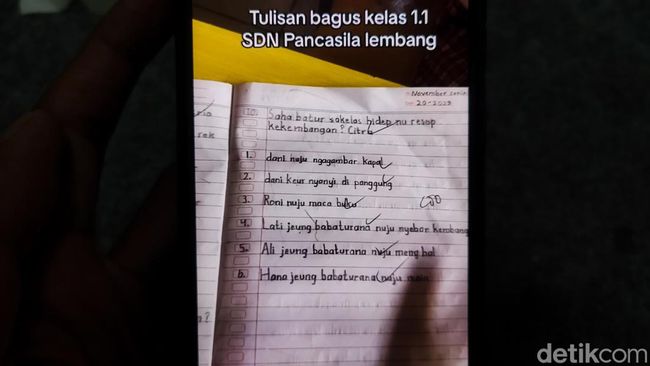 Tulisan bagus kelas 1.1
SDN Pancasila lembang
November senin
20-2023
10. Saha batur sakelas hidep nu resep
kekembangan? Citra
1. dani nuju ngagambar kapal
2. dani keur nyanyi di panggung
3. Roni nuju maca buku
100
4. Lati jeung babaturana nuju nyebar kembang
5. Ali jeung babaturana nuju meng bal
6. Hana jeung babaturana nuju
rek
?
detikcom